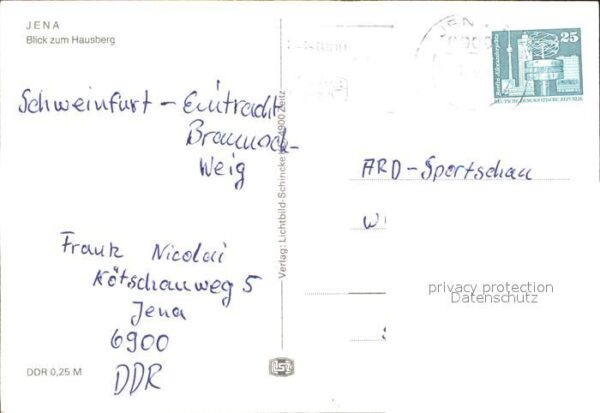 JENA
Blick zum Hausberg
25
DEUTSCHE DEMOKRATISCHE REPUBLIK
Schweinfurt - Eintracht
Braunsch-
weig
ARD-Sportschau
W
Frank Nicolai
Kötschauweg 5
Jena
6900
DDR
Verlag: Lichtbild-Schincke 4900 Zeitz
privacy protection
Datenschutz
DDR 0,25 M